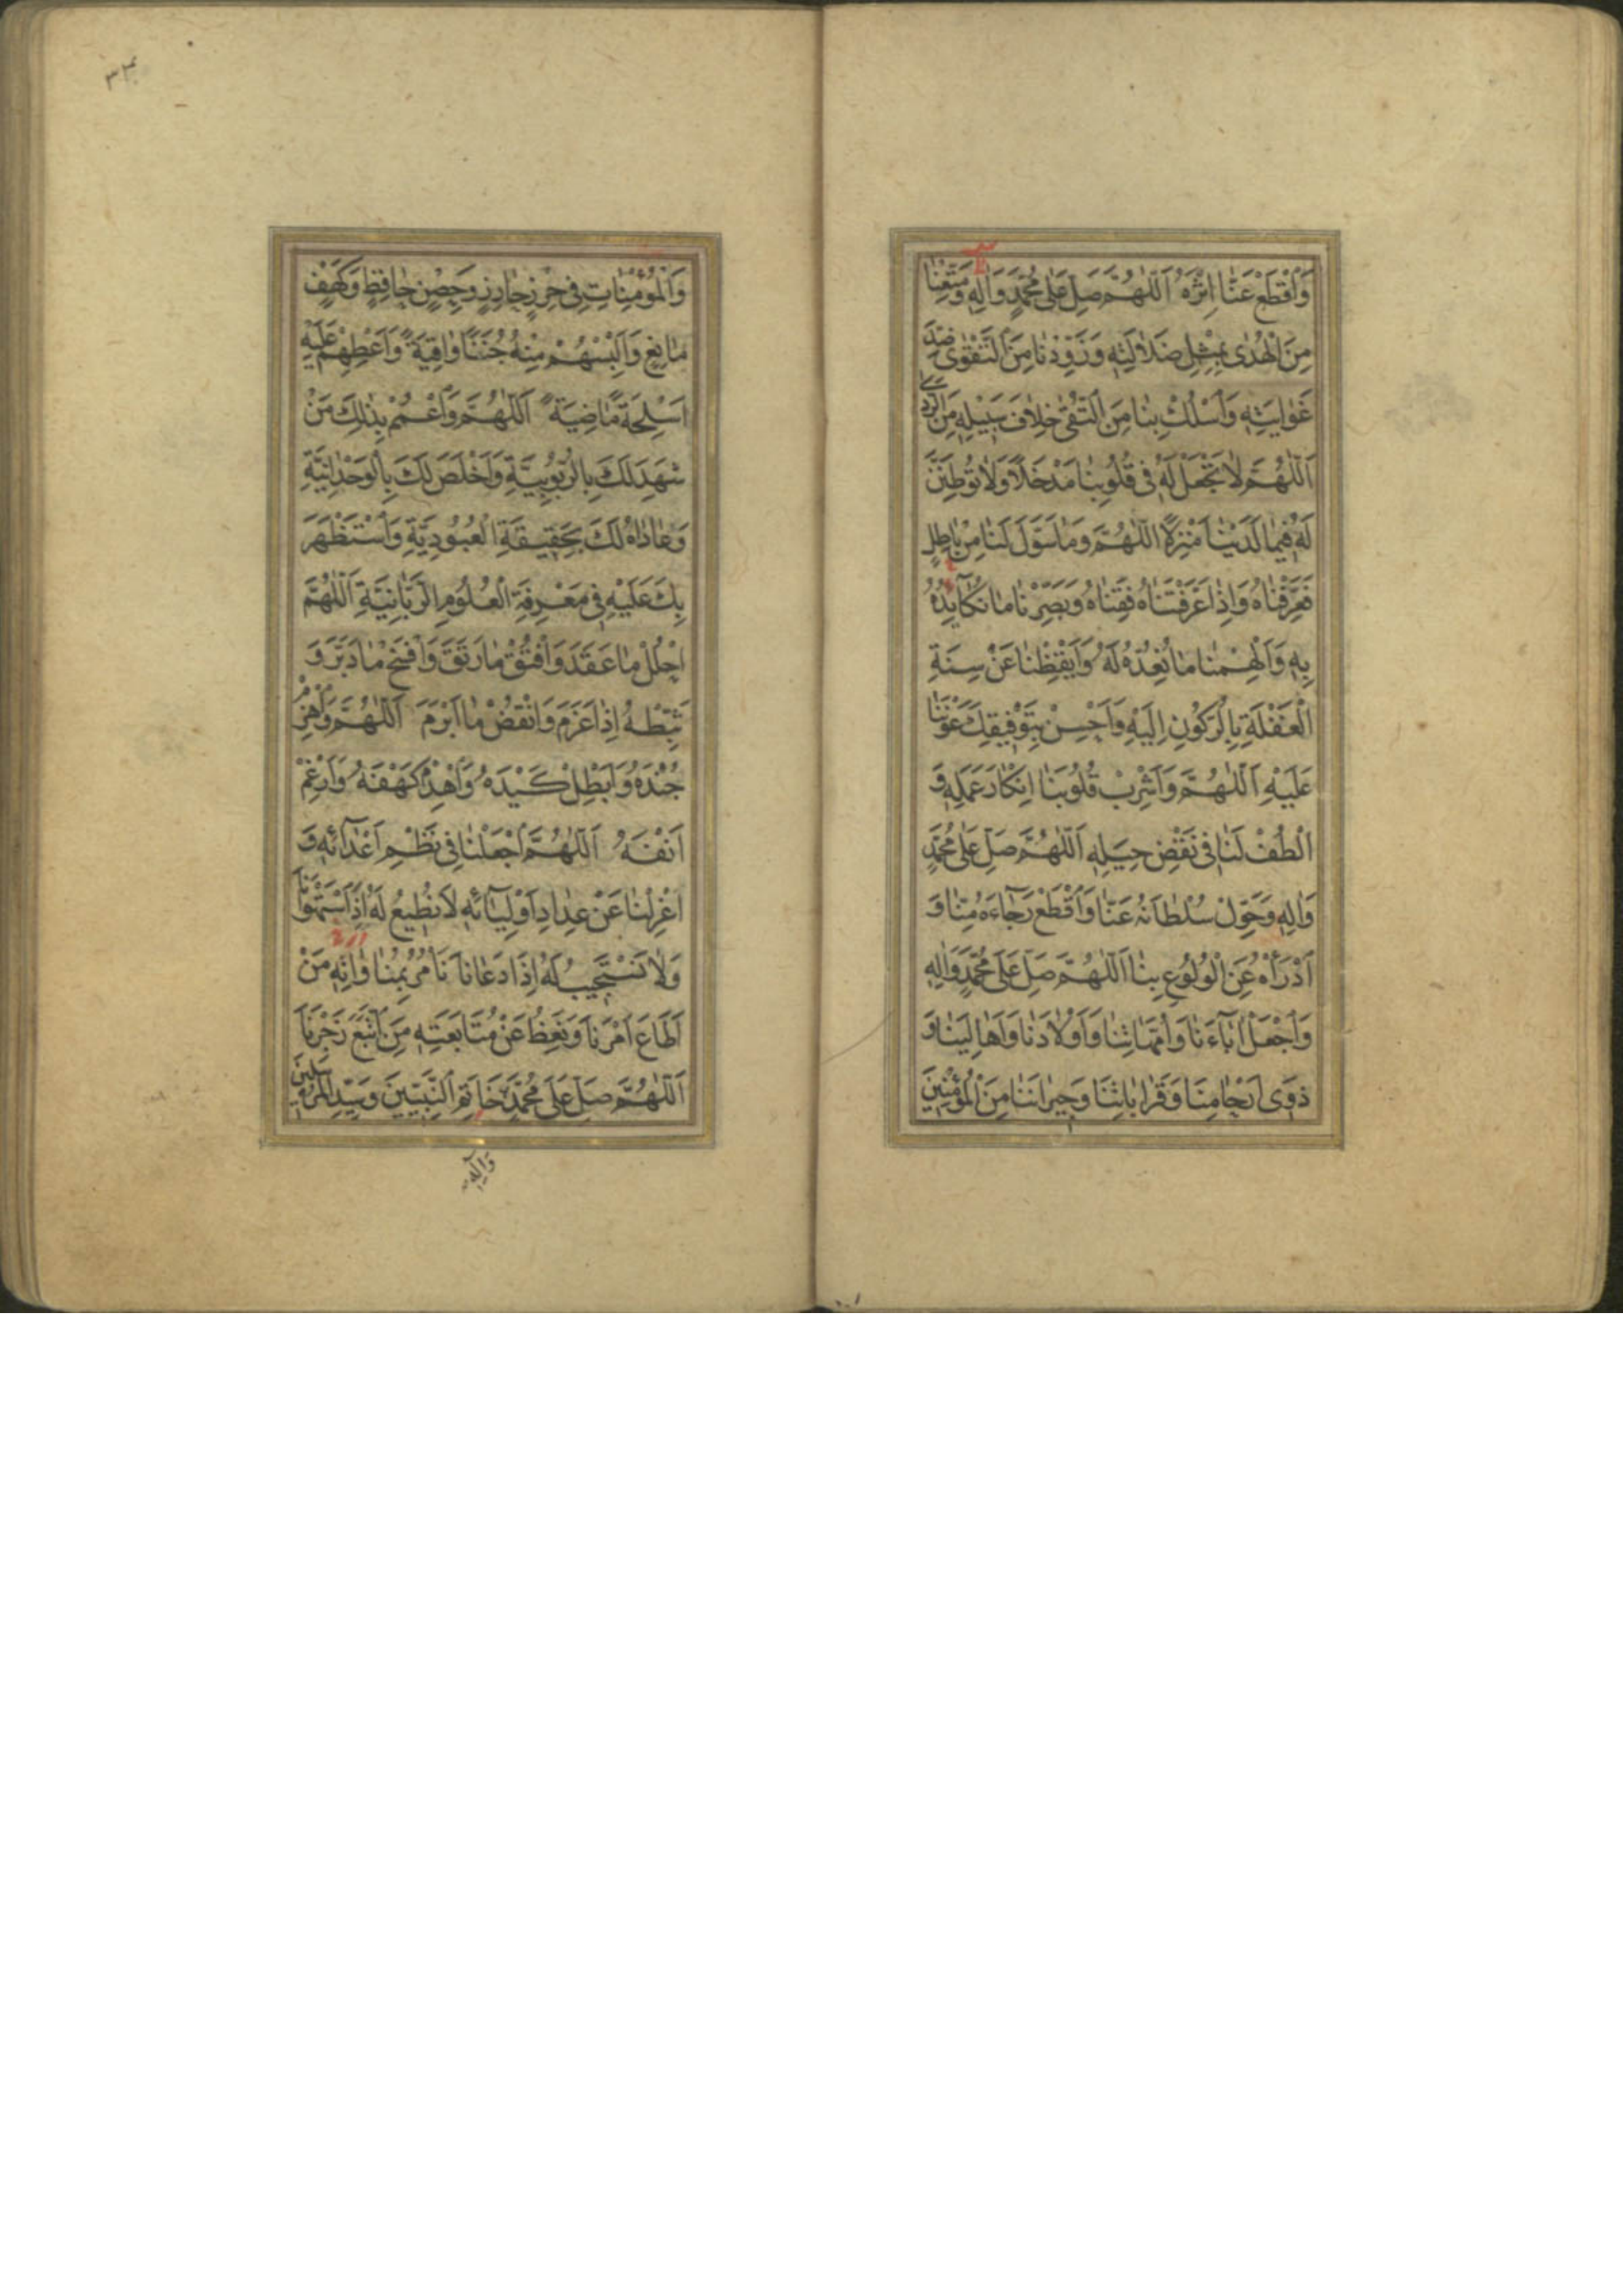 وَاقْطَعْ عَنَّا اِثْرَهُ اَللّٰهُمَّ صَلِّ عَلٰى مُحَمَّدٍ وَاٰلِهِ وَمَتِّعْنَا
مِنَ الْهُدٰى بِمِثْلِ ضَلَالَتِهِ وَزَوِّدْنَا مِنَ التَّقْوٰى ضِدَّ
غَوَايَتِهِ وَاسْلُكْ بِنَا مِنَ التُّقٰى خِلَافَ سَبِيلِهِ مِنَ الرَّدٰى
اَللّٰهُمَّ لَا تَجْعَلْ لَهُ فِى قُلُوبِنَا مَدْخَلًا وَلَا تُوطِنَنَّ
لَهُ فِيمَا لَدَيْنَا مَنْزِلًا اَللّٰهُمَّ وَمَا سَوَّلَ لَنَا مِنْ بَاطِلٍ
فَعَرِّفْنَاهُ وَاِذَا عَرَّفْتَنَاهُ فَقِنَاهُ وَبَصِّرْنَا مَا نُكَايِدُهُ
بِهِ وَاَلْهِمْنَا مَا نُعِدُّهُ لَهُ وَاَيْقِظْنَا عَنْ سِنَةِ
الْغَفْلَةِ بِالرُّكُونِ اِلَيْهِ وَاَحْسِنْ بِتَوْفِيقِكَ عَوْنَنَا
عَلَيْهِ اَللّٰهُمَّ وَاَشْرِبْ قُلُوبَنَا اِنْكَارَ عَمَلِهِ وَ
الْطُفْ لَنَا فِى نَقْضِ حِيَلِهِ اَللّٰهُمَّ صَلِّ عَلٰى مُحَمَّدٍ
وَاٰلِهِ وَحَوِّلْ سُلْطَانَهُ عَنَّا وَاقْطَعْ رَجَاءَهُ مِنَّا وَ
ادْرَأْهُ عَنِ الْوُلُوعِ بِنَا اَللّٰهُمَّ صَلِّ عَلٰى مُحَمَّدٍ وَاٰلِهِ
وَاجْعَلْ اٰبَاءَنَا وَاُمَّهَاتِنَا وَاَوْلَادَنَا وَاَهَالِيَنَا وَ
ذَوِى اَرْحَامِنَا وَقَرَابَاتِنَا وَجِيرَانَنَا مِنَ الْمُؤْمِنِينَ
٣٣
وَالْمُؤْمِنَاتِ فِى حِرْزٍ حَارِزٍ وَحِصْنٍ حَافِظٍ وَكَهْفٍ
مَانِعٍ وَاَلْبِسْهُمْ مِنْهُ جُنَنًا وَاقِيَةً وَاَعْطِهِمْ عَلَيْهِ
اَسْلِحَةً مَاضِيَةً اَللّٰهُمَّ وَاعْمُمْ بِذٰلِكَ مَنْ
شَهِدَ لَكَ بِالرُّبُوبِيَّةِ وَاَخْلَصَ لَكَ بِالْوَحْدَانِيَّةِ
وَعَادَاهُ لَكَ بِحَقِيقَةِ الْعُبُودِيَّةِ وَاسْتَظْهَرَ
بِكَ عَلَيْهِ فِى مَعْرِفَةِ الْعُلُومِ الرَّبَّانِيَّةِ اَللّٰهُمَّ
احْلُلْ مَا عَقَدَ وَافْتُقْ مَا رَتَقَ وَافْسَخْ مَا دَبَّرَ وَ
ثَبِّطْهُ اِذَا عَزَمَ وَانْقُضْ مَا اَبْرَمَ اَللّٰهُمَّ وَاهْزِمْ
جُنْدَهُ وَاَبْطِلْ كَيْدَهُ وَاهْدِمْ كَهْفَهُ وَاَرْغِمْ
اَنْفَهُ اَللّٰهُمَّ اجْعَلْنَا فِى نَظْمِ اَعْدَائِهِ وَ
اعْزِلْنَا عَنْ عِدَادِ اَوْلِيَائِهِ لَا نُطِيعُ لَهُ اِذَا اسْتَهْوَانَا
وَلَا نَسْتَجِيبُ لَهُ اِذَا دَعَانَا نَأْمُرُ بِمُنَاوَاتِهِ مَنْ
اَطَاعَ اَمْرَنَا وَنَعِظُ عَنْ مُتَابَعَتِهِ مَنِ اتَّبَعَ زَجْرَنَا
اَللّٰهُمَّ صَلِّ عَلٰى مُحَمَّدٍ خَاتَمِ النَّبِيِّينَ وَسَيِّدِ الْمُرْسَلِينَ
وَاٰلِهِ